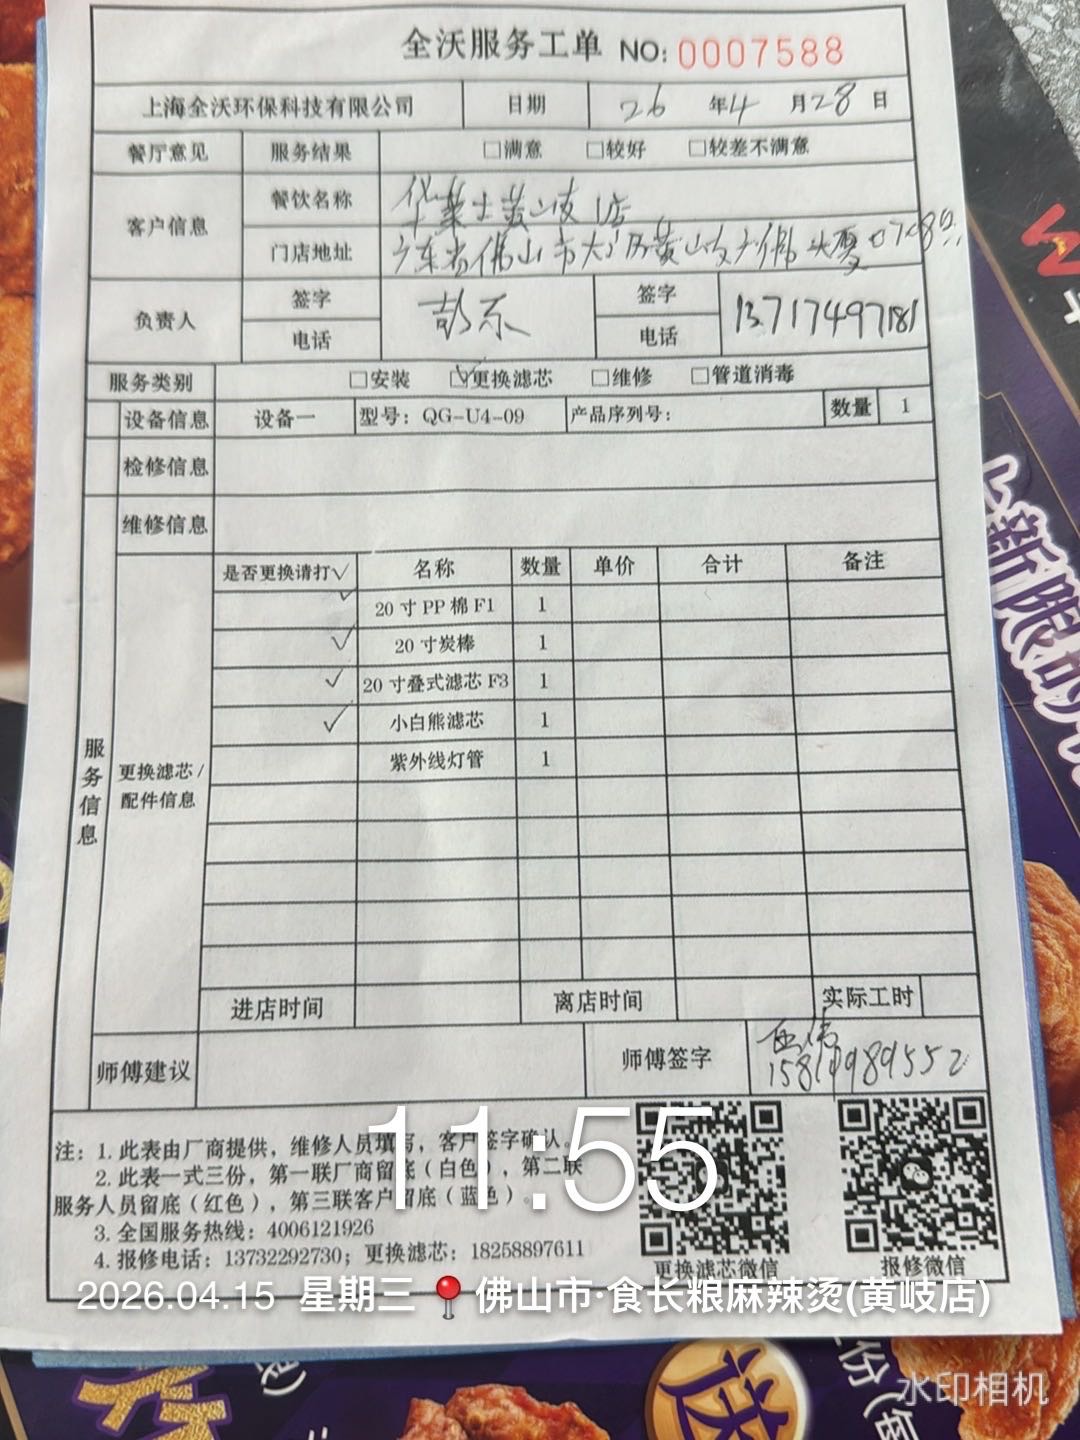 全沃服务工单 NO: 0007588
上海全沃环保科技有限公司 日期 26 年 4 月 28 日
餐厅意见 服务结果 □满意 □较好 □较差不满意
客户信息 餐饮名称 华莱士黄岐店
门店地址 广东省佛山市大沥黄岐广佛大厦
负责人 签字 签字
电话 电话 13717497181
服务类别 □安装 ☑更换滤芯 □维修 □管道消毒
设备信息 设备一 型号: QG-U4-09 产品序列号: 数量 1
检修信息
维修信息
服务信息
更换滤芯/
配件信息
是否更换请打√ 名称 数量 单价 合计 备注
✓ 20寸PP棉F1 1
✓ 20寸炭棒 1
✓ 20寸叠式滤芯F3 1
✓ 小白熊滤芯 1
紫外线灯管 1
进店时间 离店时间 实际工时
师傅建议 师傅签字
注: 1. 此表由厂商提供, 维修人员填写, 客户签字确认。
2. 此表一式三份, 第一联厂商留底(白色), 第二联
服务人员留底(红色), 第三联客户留底(蓝色)。
3. 全国服务热线: 4006121926
4. 报修电话: 13732292730; 更换滤芯: 18258897611
更换滤芯微信 报修微信
11:55
2026.04.15 星期三 佛山市·食长粮麻辣烫(黄岐店)
水印相机
送